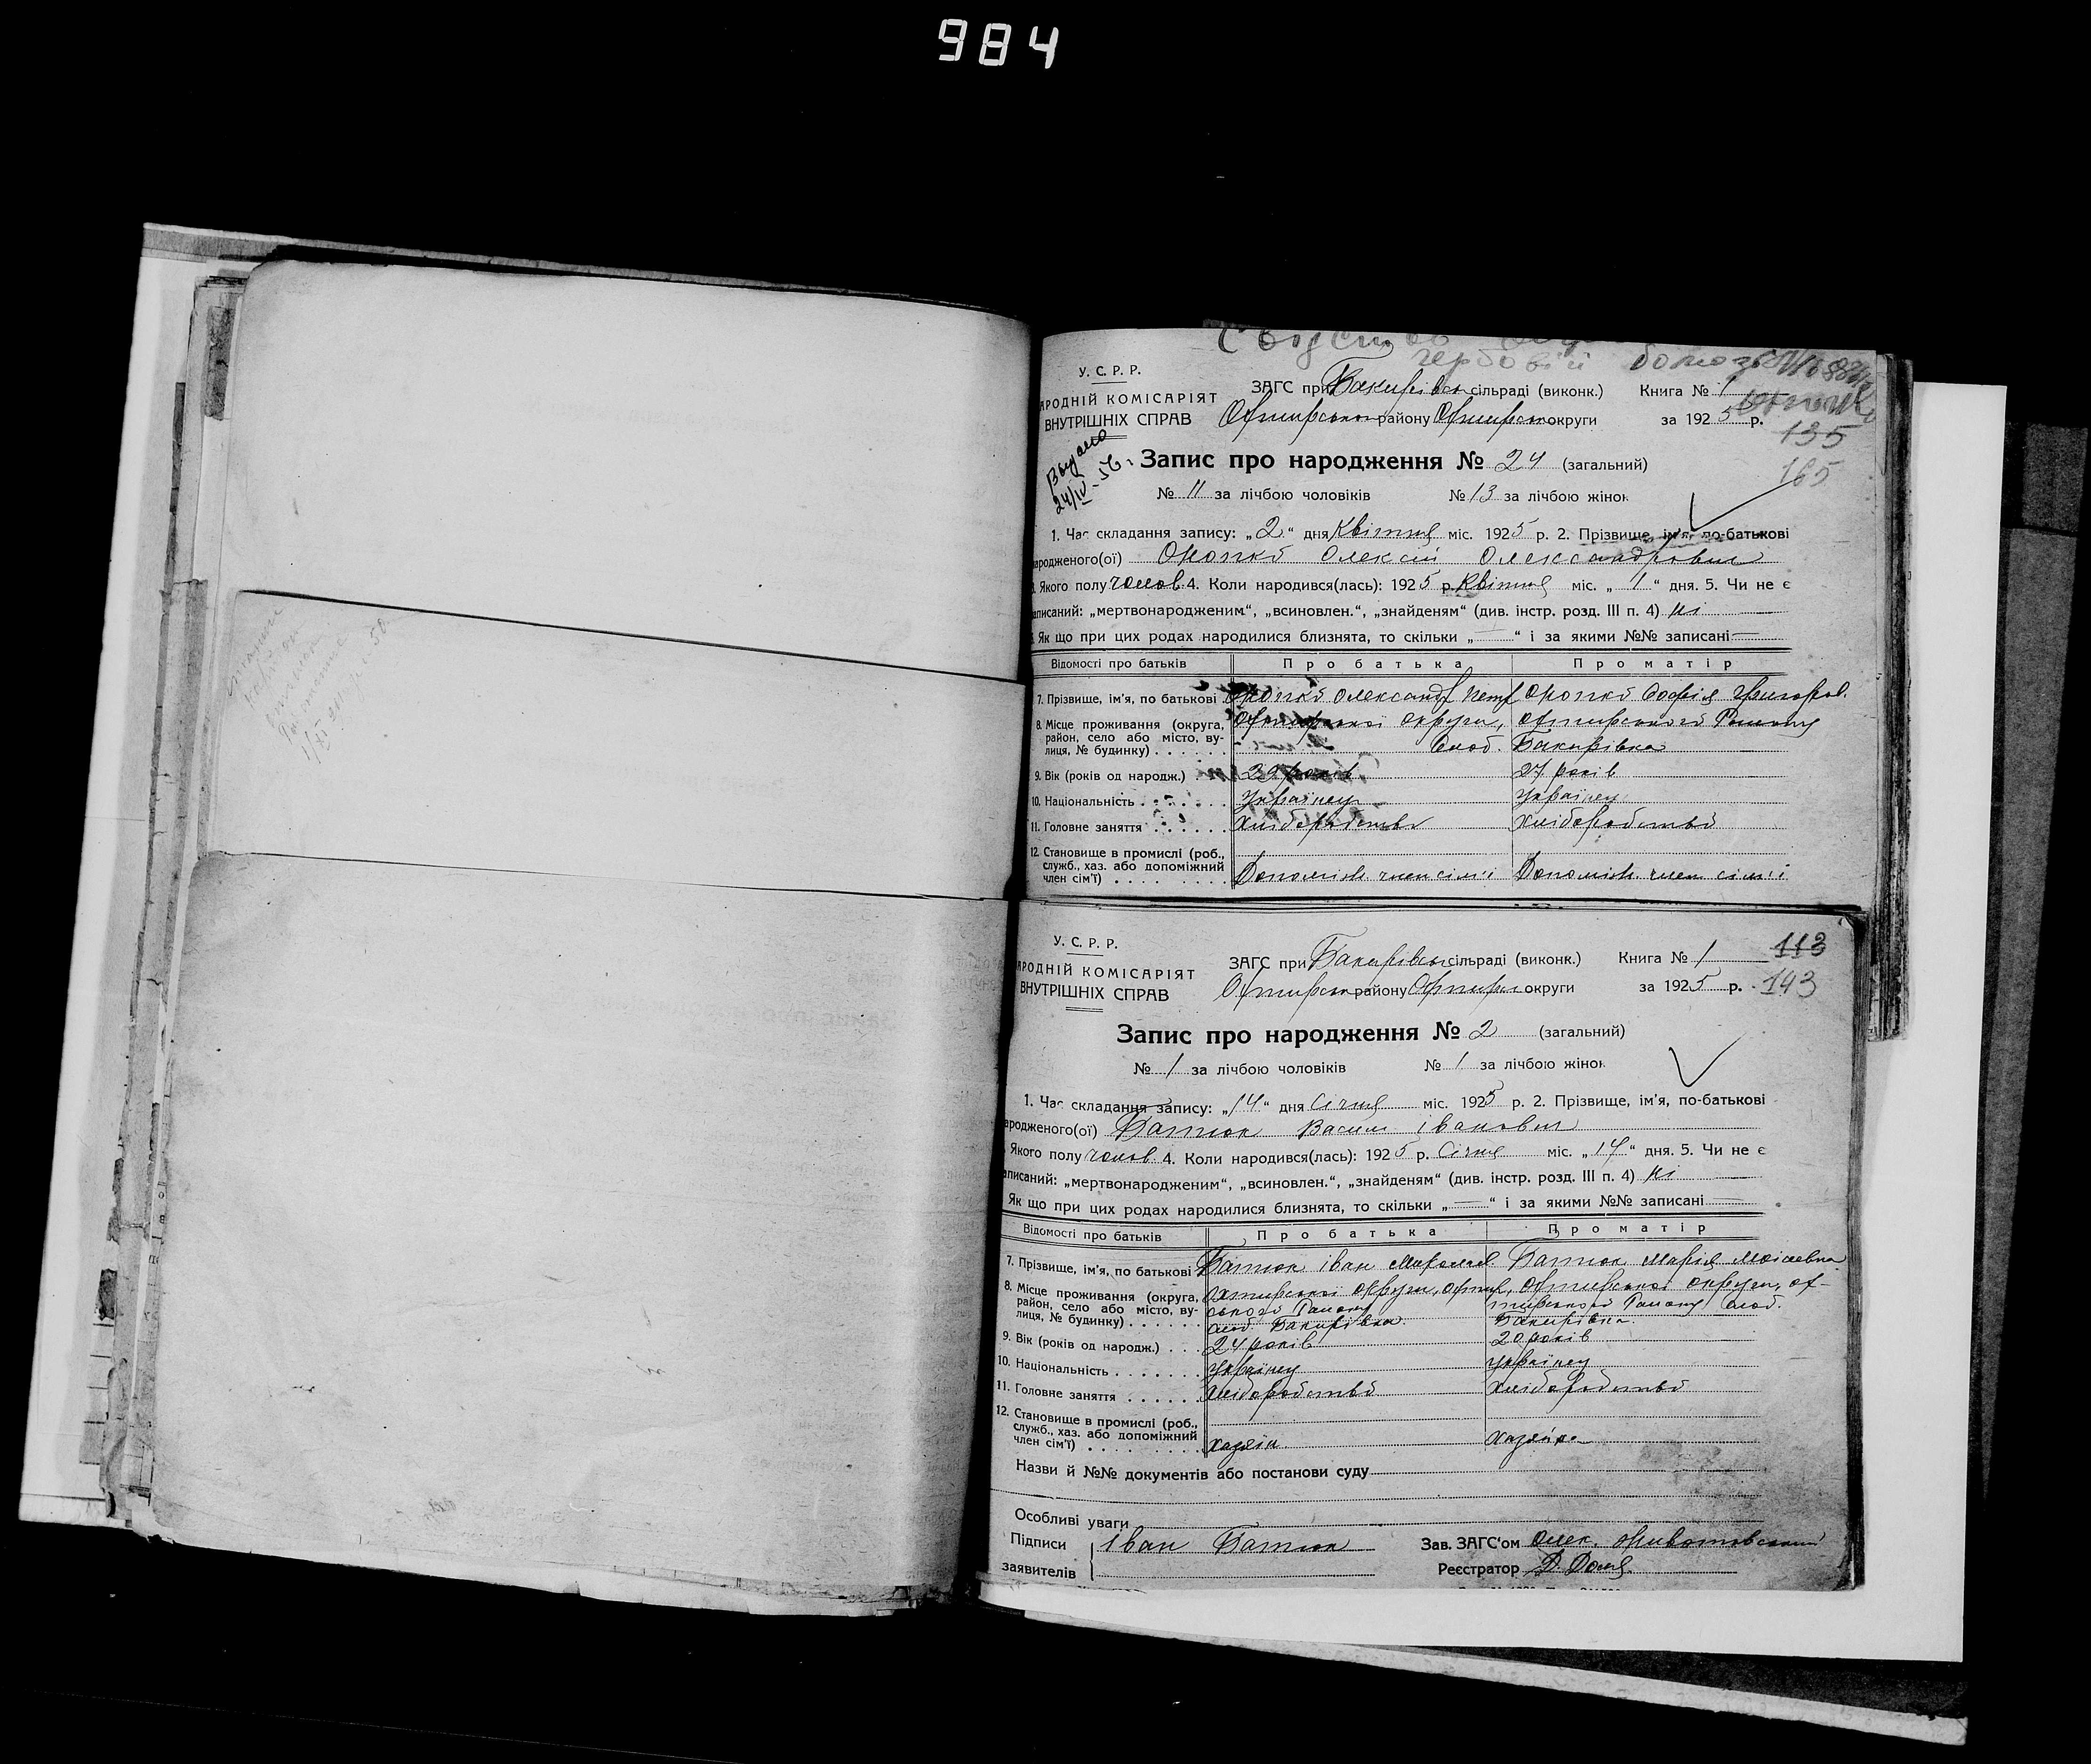 984
У. С. Р. Р.
АРОДНІЙ КОМІСАРІЯТ
ВНУТРІШНІХ СПРАВ
ЗАГС при Бакирівськ сільраді (виконк.) Книга № 1
району округи за 1925 р.
135
165
Выдано
24/IV-56.
Запис про народження № 24 (загальний)
№ 11 за лічбою чоловіків № 13 за лічбою жінок
1. Час складання запису: „2“ дня Квітня міс. 1925 р. 2. Прізвище, ім'я, по-батькові
ародженого(ої) Олексій Олександрович
Якого полу чолов. 4. Коли народився(лась): 1925 р. Квітня міс. „1“ дня. 5. Чи не є
аписаний: „мертвонародженим“, „всиновлен.“, „знайденям“ (див. інстр. розд. III п. 4) ні
Як що при цих родах народилися близнята, то скільки „—“ і за якими №№ записані —
Відомості про батьків Про батька Про матір
7. Прізвище, ім'я, по батькові Олександр Петр Софія Григоров.
8. Місце проживання (округа, район, село або місто, вулиця, № будинку) . . . . . . округи, Охтирського Району
Слоб. Бакирівка
9. Вік (років од народж.) . 29 років 27 років
10. Національність . . . . . . . Українец Українец
11. Головне заняття . . . . . . Хліборобство Хліборобство
12. Становище в промислі (роб., служб., хаз. або допоміжний член сім'ї) . . . . . . . . Допоміжн. член сімії Допоміжн. член сімії
У. С. Р. Р.
АРОДНІЙ КОМІСАРІЯТ
ВНУТРІШНІХ СПРАВ
ЗАГС при Бакирівськ сільраді (виконк.) Книга № 1
Охтирськ району Охтирськ округи за 1925 р.
113
143
Запис про народження № 2 (загальний)
№ 1 за лічбою чоловіків № 1 за лічбою жінок
1. Час складання запису: „14“ дня Січня міс. 1925 р. 2. Прізвище, ім'я, по-батькові
ародженого(ої) Батюк Василь Іванович
Якого полу чолов. 4. Коли народився(лась): 1925 р. Січня міс. „14“ дня. 5. Чи не є
аписаний: „мертвонародженим“, „всиновлен.“, „знайденям“ (див. інстр. розд. III п. 4) ні
Як що при цих родах народилися близнята, то скільки „—“ і за якими №№ записані —
Відомості про батьків Про батька Про матір
7. Прізвище, ім'я, по батькові Батюк Іван Батюк Марія Моісеевна
8. Місце проживання (округа, район, село або місто, вулиця, № будинку) . . . . . . Охтирської округи, Охтир, Охтирської округи, Ох-
ського Району тирського Району слоб.
слоб. Бакирівка. Бакирівка.
9. Вік (років од народж.) . . . 24 років 20 років
10. Національність . . . . . . . Українец Українец
11. Головне заняття . . . . . . Хліборобство Хліборобство
12. Становище в промислі (роб., служб., хаз. або допоміжний член сім'ї) . . . . . . . . Хазяїн Хазяйка
Назви й №№ документів або постанови суду
Особливі уваги
Підписи заявителів Іван Батюк
Зав. ЗАГС'ом Олек.
Реєстратор Д.